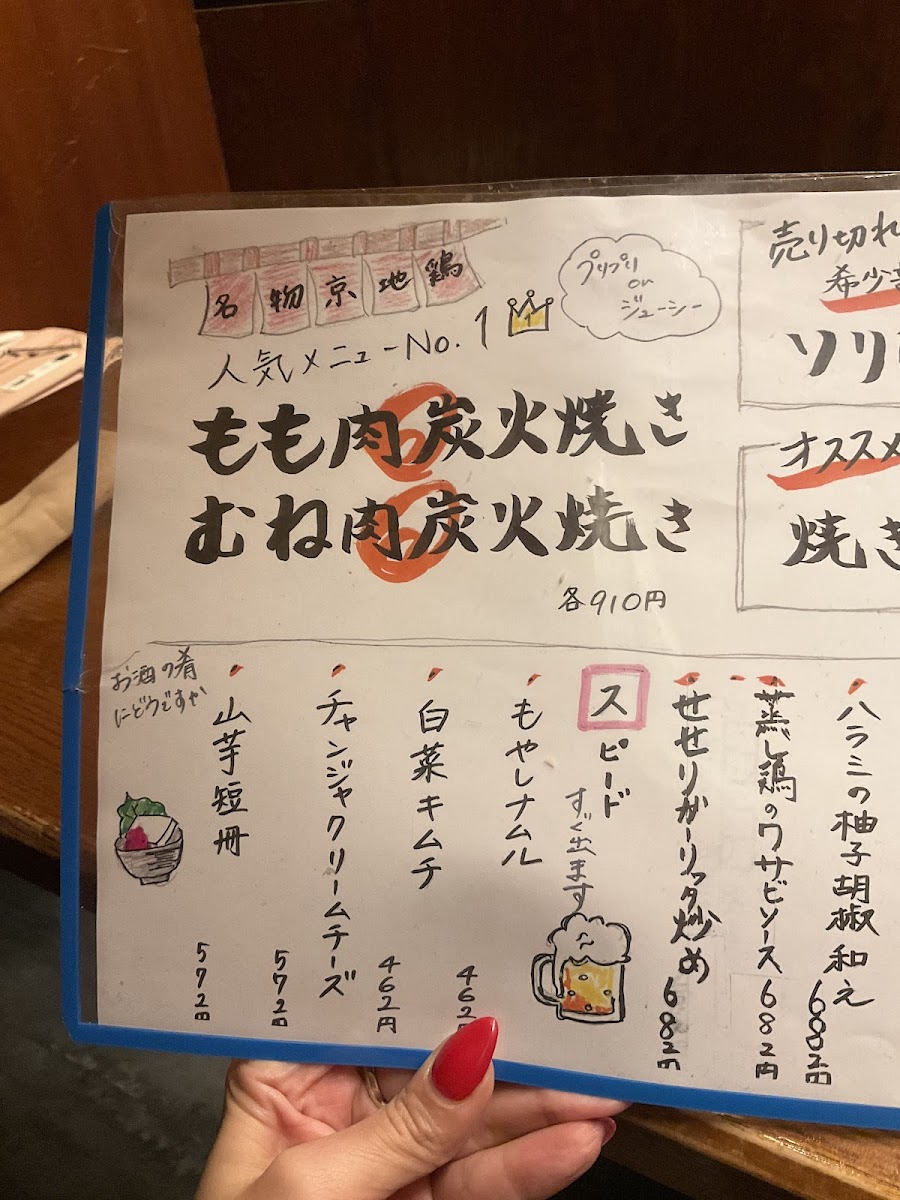 名物京地鶏
人気メニューNo.1
プリプリ
or
ジューシー
もも肉炭火焼き
むね肉炭火焼き
各910円
売り切れ
希少
ソリ
オススメ
焼き
ハラミの柚子胡椒和え
682円
蒸し鶏のワサビソース
682円
せせりガーリック炒め
682円
スピード
すぐ出ます
もやしナムル
462
白菜キムチ
462円
チャンジャクリームチーズ
572円
山芋短冊
572円
お酒の肴
にどうですか